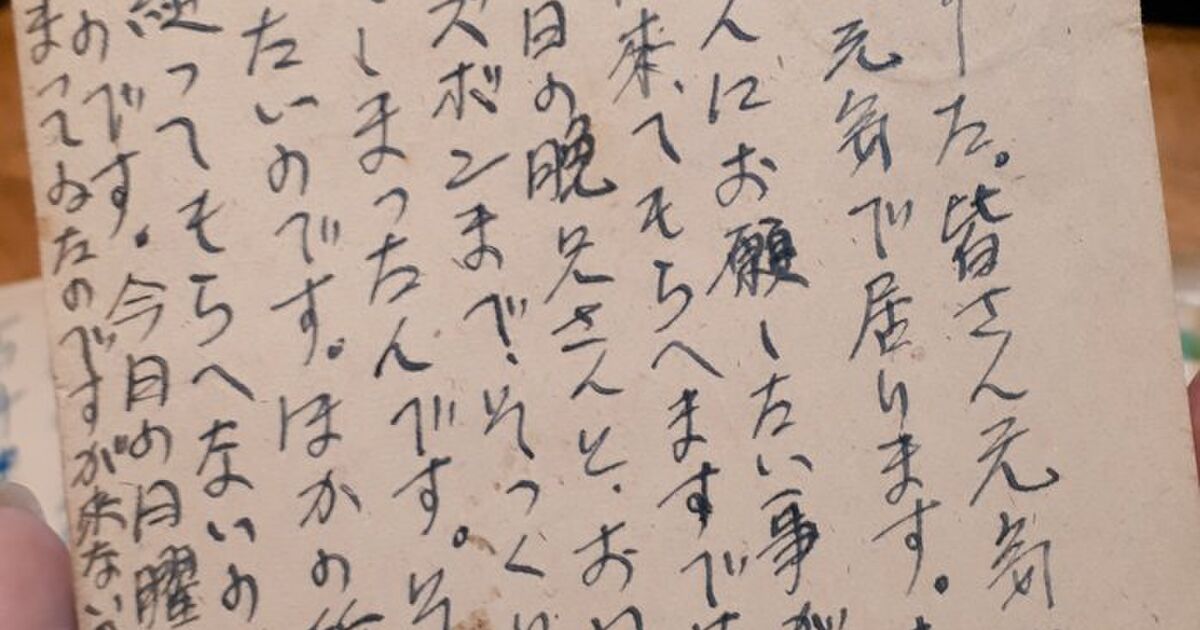 した。皆さん元気
元気で居ります。
んにお願いしたい事が
来てもらへますで
日の晩兄さんと、お
ズボンまで、そっくり
しまったんです。そ
たいのです。ほかの
縫ってもらへないの
のです。今日の日曜
まってゐたのですが来ない